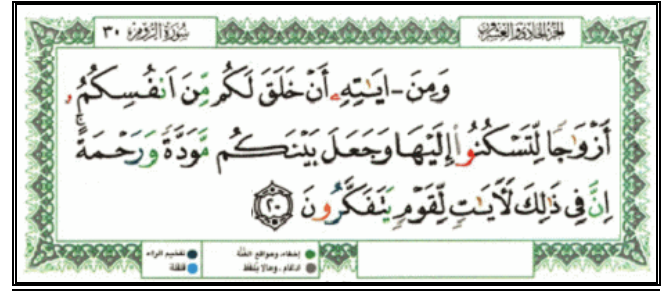 الجزء الحادي والعشرون
سُورَةُ الرُّومِ ٣٠
وَمِنَ - ايَٰتِهِۦٓ أَنْ خَلَقَ لَكُم مِّنَ اَنفُسِكُمُۥٓ
أَزْوَٰجًا لِّتَسْكُنُوٓاْ إِلَيْهَا وَجَعَلَ بَيْنَكُم مَّوَدَّةً وَرَحْمَةًۚ
اِنَّ فِى ذَٰلِكَ لَأٓيَٰتٍ لِّقَوْمٍ يَتَفَكَّرُونَ ٢٠
إخفاء، ومواقع الغنّة
تفخيم الراء
ادغام، ومالا يُلفظ
قلقلة